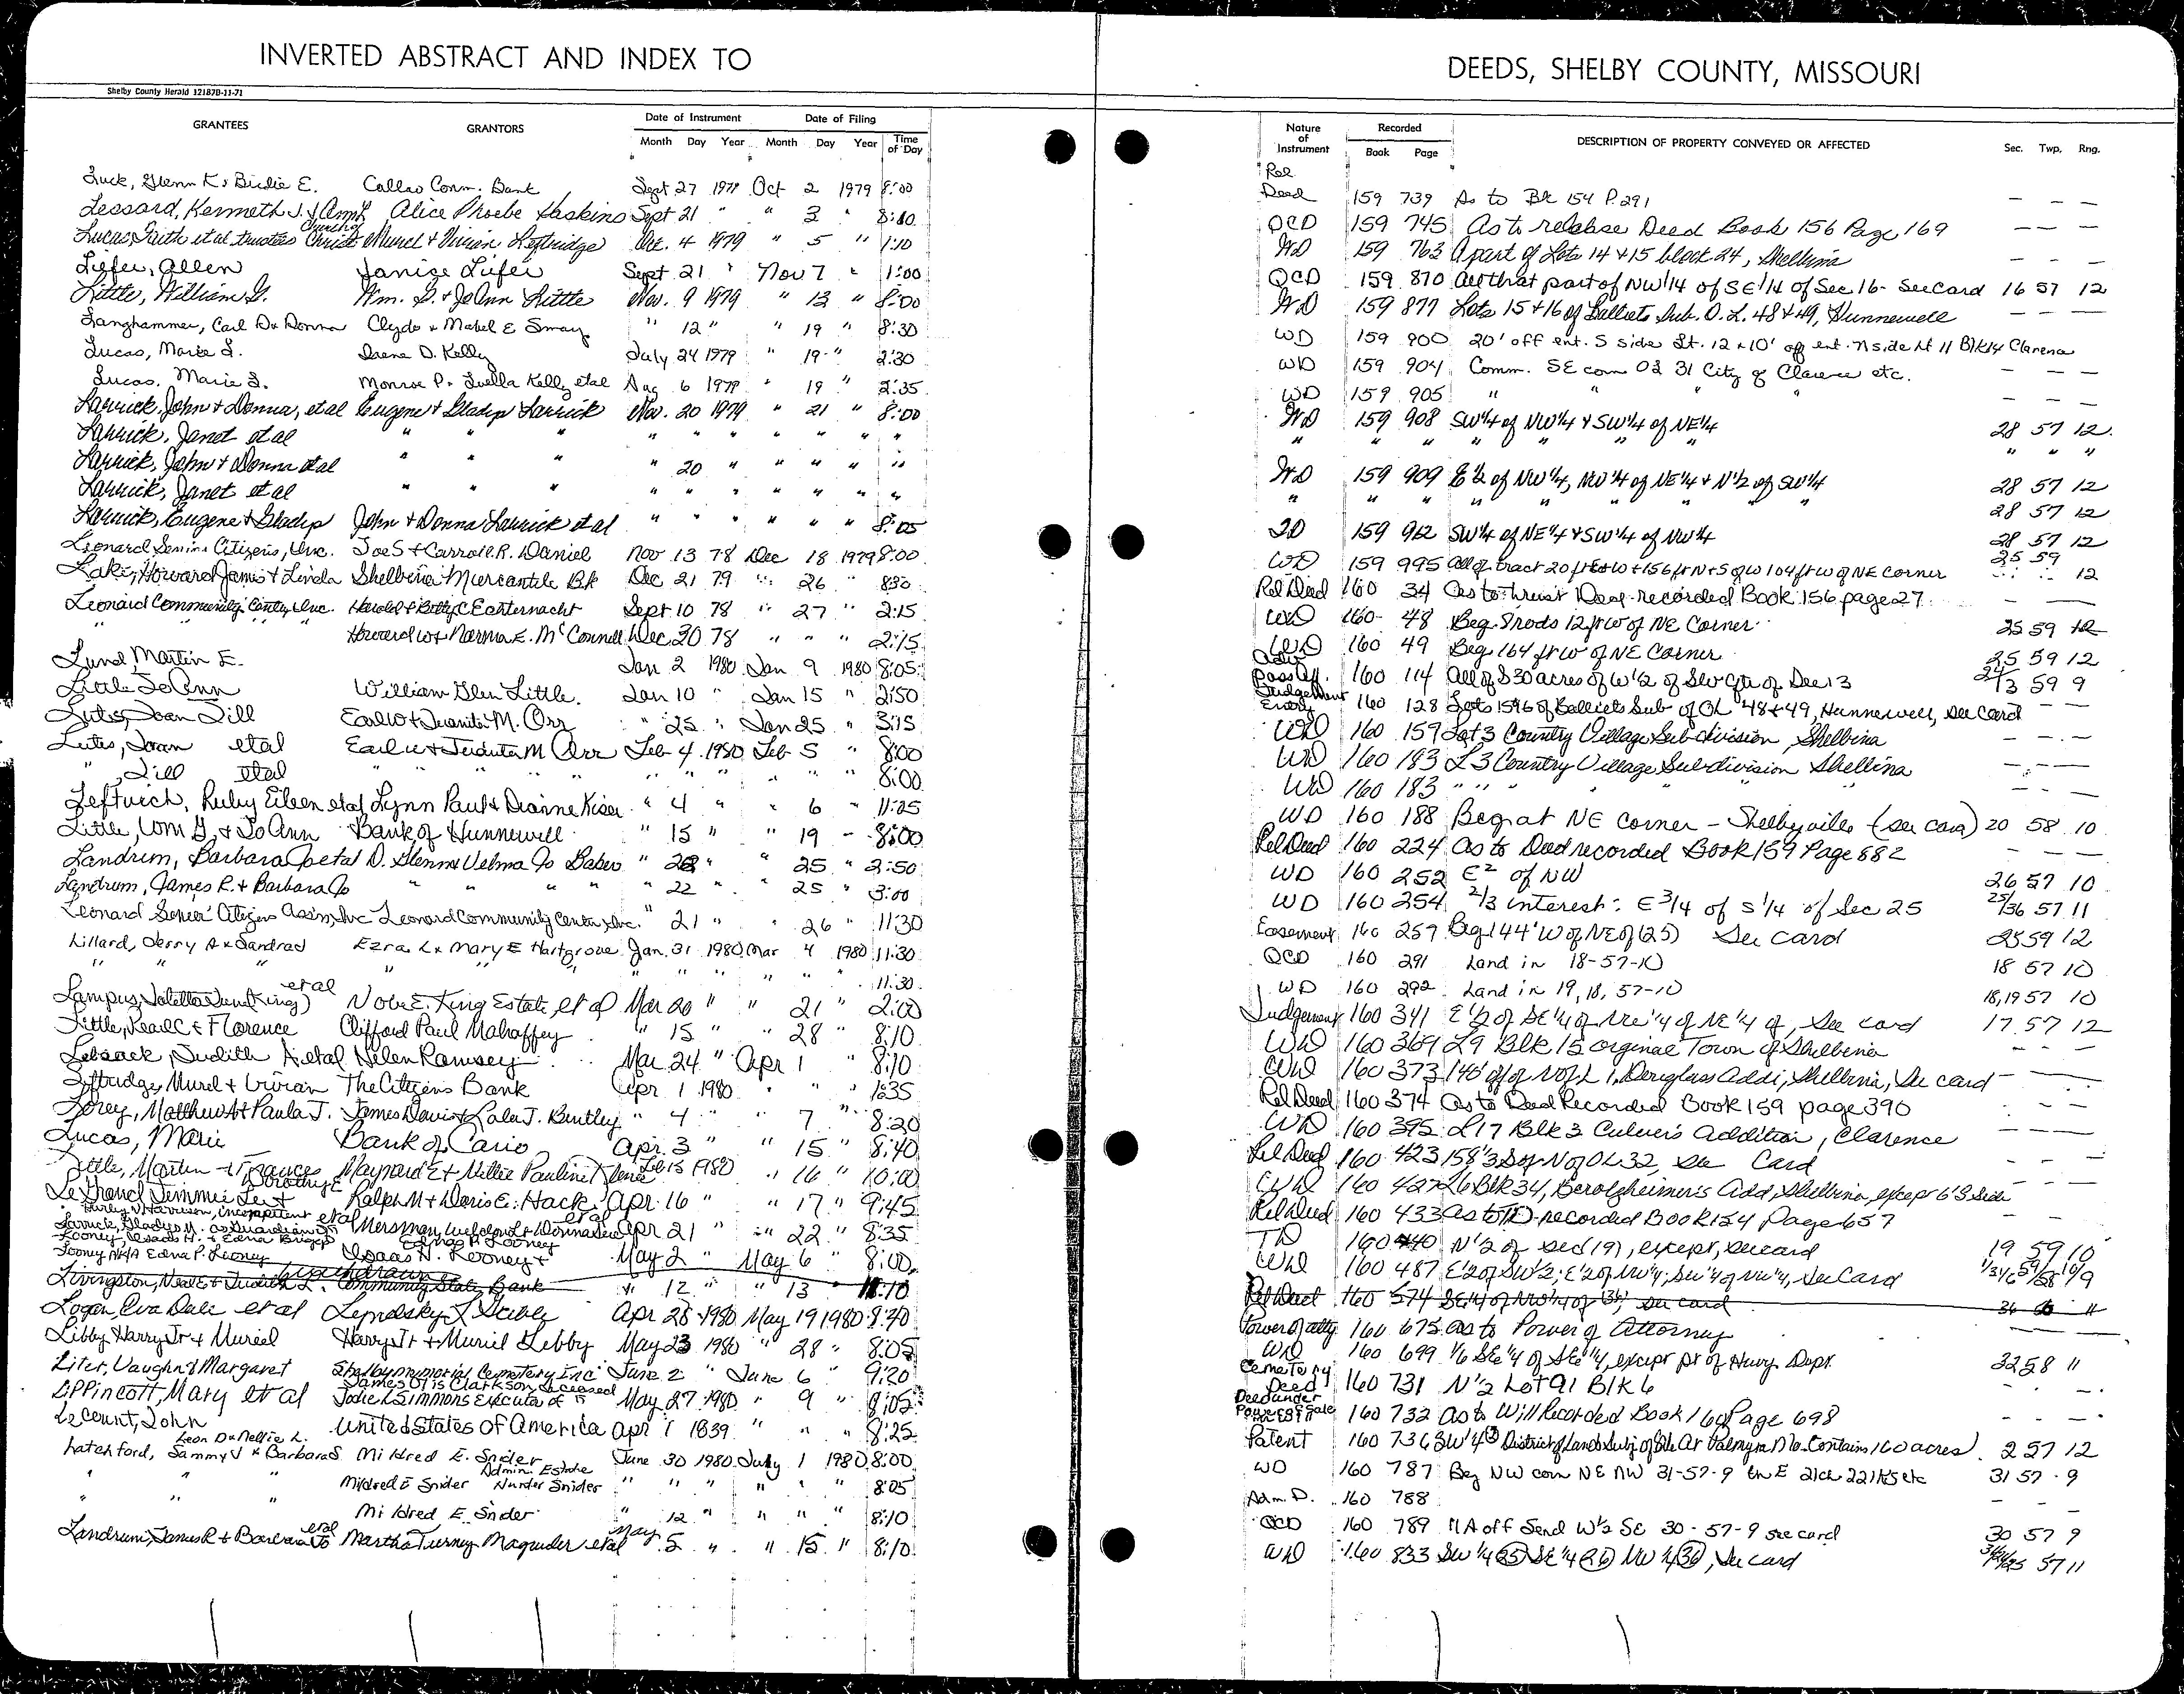 INVERTED ABSTRACT AND INDEX TO
Shelby County Herald 121878-11-71
GRANTEES GRANTORS Date of Instrument Date of Filing
Month Day Year Month Day Year Time of Day
Luck, Glenn K & Birdie E. Callao Comm. Bank Sept 27 1979 Oct 2 1979 8:00
Lessard, Kenneth J. & Amy L Alice Phoebe Haskins Sept 21 " " 3 " 8:10
Church of
Lucas, Faith et al trustees Christ Murel & Vivian Leftridge Oct. 4 1979 " 5 " 1:10
Liefer, Allen Janice Liefer Sept 21 " Nov 7 " 1:00
Little, William G. Wm. G. & JoAnn Little Nov. 9 1979 " 13 " 8:00
Langhammer, Carl D & Donna Clyde & Mabel E Smay " 12 " " 19 " 8:30
Lucas, Marie L. Irene D. Kelly July 24 1979 " 19 " 2:30
Lucas, Marie L. Monroe P. Luella Kelly etal Aug 6 1979 " 19 " 2:35
Larrick, John & Donna, et al Eugene & Gladys Larrick Nov. 20 1979 " 21 " 8:00
Larrick, Janet et al " " " " " " " " " "
Larrick, John & Donna et al " " " " 20 " " " " "
Larrick, Janet et al " " " " " " " " " "
Larrick, Eugene & Gladys John & Donna Larrick et al " " " " " " 8:05
Leonard Senior Citizens, Inc. Joe S & Carroll R. Daniel Nov 13 78 Dec 18 1979 8:00
Lake, Howard James & Linda Shelbina Mercantile Bk Dec 21 79 " 26 " 830
Leonard Community Center, Inc. Harold & Betty C Easternacht Sept 10 78 " 27 " 2:15
" " " " Howard W & Norma E. McConnell Dec 30 78 " " " 2:15
Lund, Martin E. Jan 2 1980 Jan 9 1980 8:05
Little JoAnn William Glen Little Jan 10 " Jan 15 " 2:50
Lutes, Joan Jill Earl W & Juanita M. Orr " 25 " Jan 25 " 3:15
Lutes, Joan etal Earl W & Juanita M Orr Feb 4 1980 Feb 5 " 8:00
" , Jill etal " " " " " " " " " 8:00
Leftwich, Ruby Eileen etal Lynn Paul & Dianne Kiser " 4 " " 6 " 11:25
Little, Wm G, & JoAnn Bank of Hunnewell " 15 " " 19 - 8:00
Landrum, Barbara Jo etal D. Glenn & Velma Jo Baker " 22 " " 25 " 2:50
Landrum, James R. & Barbara Jo " " " " " 22 " " 25 " 3:00
Leonard Senior Citizens Assn, Inc Leonard Community Center, Inc. " 21 " " 26 " 11:30
Lillard, Jerry A & Sandra J Ezra L & Mary E Hartgrove Jan. 31 1980 Mar 4 1980 11:30
" " " " " " " " " " " 11:30
etal
Lampus, Joletta June (King) Nova E. King Estate, et al Mar 20 " " 21 " 2:00
Little, Kearl C & Florence Clifford Paul Mahaffey " 15 " " 28 " 8:10
Lebsack, Judith A. etal Helen Ramsey Mar 24 " Apr 1 " 8:10
Leftridge, Murel & Vivian The Citizens Bank Apr 1 1980 " " 1:35
Lorey, Matthew A & Paula J. James David & Lola J. Bentley " 4 " 7 " 8:20
Lucas, Marie Bank of Cairo Apr. 3 " " 15 " 8:40
Little, Martin & Frances Maynard E & Nellie Pauline Feb 15 1980 " 16 " 10:00
Dorothy E
LeGrand Jimmie Lee & Ralph M & Doris E. Hack Apr 16 " " 17 " 9:45
Larrick, Gladys M. as Guardian etal Apr 21 " " 22 " 8:35
Looney, Isaac H. & Edna Briggs Edna P Looney
Looney N/K/A Edna P. Looney Isaac H. Looney & May 2 " May 6 " 8:00
withdrawn
Livingston, Neal E & Judith L. Community State Bank " 12 " " 13 " 11:10
Logan, Eva Dale et al Apr 28 1980 May 19 1980 8:40
Libby Harry Jr & Muriel Harry Jr & Muriel Libby May 23 1980 " 28 " 8:05
Liter, Vaughn & Margaret Shelby Memorial Cemetery Inc June 2 " June 6 " 9:20
James Otis Clarkson deceased
Lippincott, Mary et al Jodie L Simmons Executor of May 27 1980 " 9 " 8:05
LeCount, John United States of America Apr 1 1839 " " " 8:25
Leon D & Nellie L.
Latchford, Sammy J & Barbara S Mildred E. Snider June 30 1980 July 1 1980 8:00
Admin. Estate
" " " Mildred E Snider Hunter Snider " " " " " " 8:05
" " " Mildred E. Snider " 12 " " " " 8:10
etal
Landrum, James R & Barbara Jo Martha Turney Magruder etal May 5 " " 15 " 8:10
DEEDS, SHELBY COUNTY, MISSOURI
Nature of Instrument Recorded Book Page DESCRIPTION OF PROPERTY CONVEYED OR AFFECTED Sec. Twp. Rng.
Rel
Deed 159 739 As to Bk 154 P.291 — — —
QCD 159 745 As to release Deed Book 156 Page 169 — — —
WD 159 763 A part of Lots 14 & 15 block 24, Shelbina — — —
QCD 159 870 All that part of NW 1/4 of SE 1/4 of Sec 16 - See Card 16 57 12
WD 159 877 Lots 15 & 16 of Balliets Sub. O.L. 48 & 49, Hunnewell — — —
WD 159 900 20' off ent. S side Lt. 12 & 10' off ent. N side Lt 11 Blk 14 Clarence
WD 159 904 Comm. SE corn 02 31 City of Clarence etc. — — —
WD 159 905 " " " — — —
WD 159 908 SW 1/4 of NW 1/4 & SW 1/4 of NE 1/4 28 57 12
" " " " " " " " " " "
WD 159 909 E 1/2 of NW 1/4, NW 1/4 of NE 1/4 & N 1/2 of SW 1/4 28 57 12
" " " " " " " " 28 57 12
QD 159 912 SW 1/4 of NE 1/4 & SW 1/4 of NW 1/4 28 57 12
WD 159 995 All of tract 20 ft E & W & 156 ft N & S of W 104 ft W of NE corner 25 59 12
Rel Deed 160 34 As to Trust Deed recorded Book 156 page 27 — —
WD 160 48 Beg. 8 rods 12 ft W of NE Corner 25 59 12
WD 160 49 Beg 164 ft W of NE Corner 25 59 12
Adv.
Poss Aff. 160 114 All of S 30 acres of W 1/2 of SW Qtr of Sec 13 24/13 59 9
Judgement
Entry 160 128 Lots 15 & 16 of Balliets Sub of OL 48 & 49, Hunnewell, See Card — —
WD 160 159 Lot 3 Country Village Subdivision, Shelbina — — —
WD 160 183 L3 Country Village Subdivision Shelbina — — —
WD 160 183 " " " " " — — —
WD 160 188 Beg at NE corner - Shelbyville (see card) 20 58 10
Rel Deed 160 224 As to Deed recorded Book 159 Page 882 — — —
WD 160 252 E2 of NW 26 57 10
WD 160 254 2/3 interest: E 3/4 of S 1/4 of Sec 25 25/36 57 11
Easement 160 259 Beg 144' W of NE of (25) See card 25 59 12
QCD 160 291 Land in 18-57-10 18 57 10
WD 160 292 Land in 19, 18, 57-10 18,19 57 10
Judgement 160 341 E 1/2 of SE 1/4 of NE 1/4 of NE 1/4 of, See card 17 57 12
WD 160 369 L9 Blk 15 Orginal Town of Shelbina — — —
WD 160 373 145' off of N of L 1, Douglass Addi, Shelbina, See card — — —
Rel Deed 160 374 As to Deed Recorded Book 159 page 390 — — —
WD 160 395 L17 Blk 3 Culver's Addition, Clarence — — —
Rel Deed 160 423 158' 3 S of N of OL 32, See Card — — —
WD 160 427 L6 Blk 34, Berolzheimer's Add, Shelbina, except 6' S side
Rel Deed 160 433 As to TD recorded Book 154 Page 657 — — —
TD 160 440 N 1/2 of Sec (19), except, see card 19 59 10
WD 160 487 E 1/2 of SW 1/2; E 1/2 of NW 1/4; SW 1/4 of NW 1/4, See Card
Rel Deed 160 574 SE 1/4 of NW 1/4 of (36), see card 36 60 11
Power of atty 160 675 As to Power of Attorney — —
WD 160 699 1/6 SE 1/4 of SE 1/4, except pt of Hiwy Dept. 32 58 11
Cemetery
Deed 160 731 N 1/2 Lot 91 Blk 6 — — —
Deed under
Power of Sale 160 732 As to Will Recorded Book 160 Page 698 — — —
Patent 160 736 SW 1/4 (2) District of Lands Subj of Sale At Palmyra Mo. Contains 160 acres. 2 57 12
WD 160 787 Beg NW corn NE NW 31-57-9 th E 21ch 22 lks etc 31 57 9
Adm. D. 160 788 — — —
QCD 160 789 11 A off S end W 1/2 SE 30-57-9 see card 30 57 9
WD 160 833 SW 1/4 (25) SE 1/4 (26) NW 1/4 (36), See card 57 11